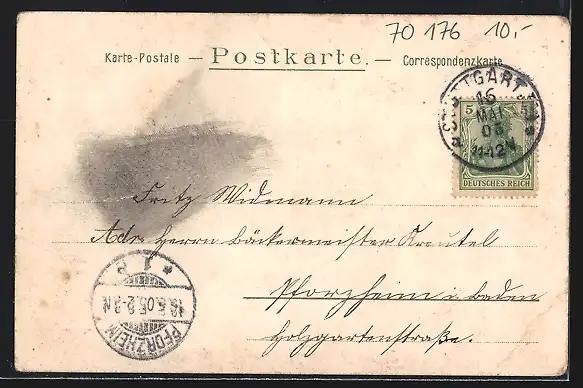 70 176 10,-
Karte-Postale — Postkarte. — Correspondenzkarte
STUTTGART
16
MAI
05
11-12N
5 5
DEUTSCHES REICH
Fritz Widmann
Adr. Herrn Bäckermeister Kreutel
Pforzheim i. Baden
Holzgartenstraße.
* 1 P
18.5.05.2-3N
PFORZHEIM